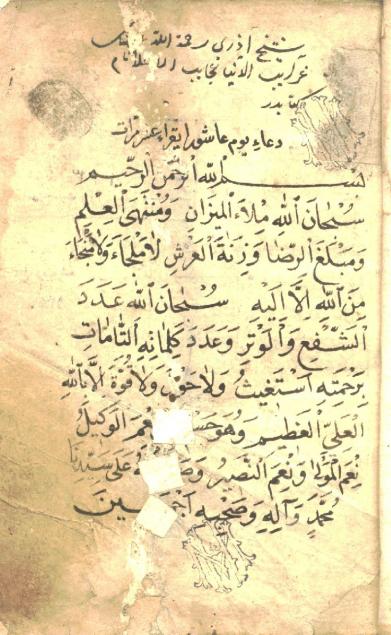 شيخ اذري رحمة الله
غرايب الدنيا عجايب الاعلا نام
كتابدر
دعاء يوم عاشورا يقراء عشر مرات
بسم الله الرحمن الرحيم
سُبْحَانَ اللهِ مِلْاءَ الْمِيزَانِ وَمُنْتَهَى الْعِلْمِ
وَمَبْلَغَ الرِّضَا وَزِنَةَ الْعَرْشِ لَا مَلْجَاءَ وَلَا مَنْجَاءَ
مِنَ اللهِ اِلَّا اِلَيْهِ سُبْحَانَ اللهِ عَدَدَ
الشَّفْعِ وَالْوَتْرِ وَعَدَدَ كَلِمَاتِهِ التَّامَّاتِ
بِرَحْمَتِهِ اَسْتَغِيثُ وَلَا حَوْلَ وَلَا قُوَّةَ اِلَّا بِاللهِ
الْعَلِيِّ الْعَظِيمِ وَهُوَ نِعْمَ الْوَكِيلُ
نِعْمَ الْمَوْلَى وَنِعْمَ النَّصِيرُ عَلَى سَيِّدِنَا
مُحَمَّدٍ وَآلِهِ وَصَحْبِهِ اَجْمَعِينَ